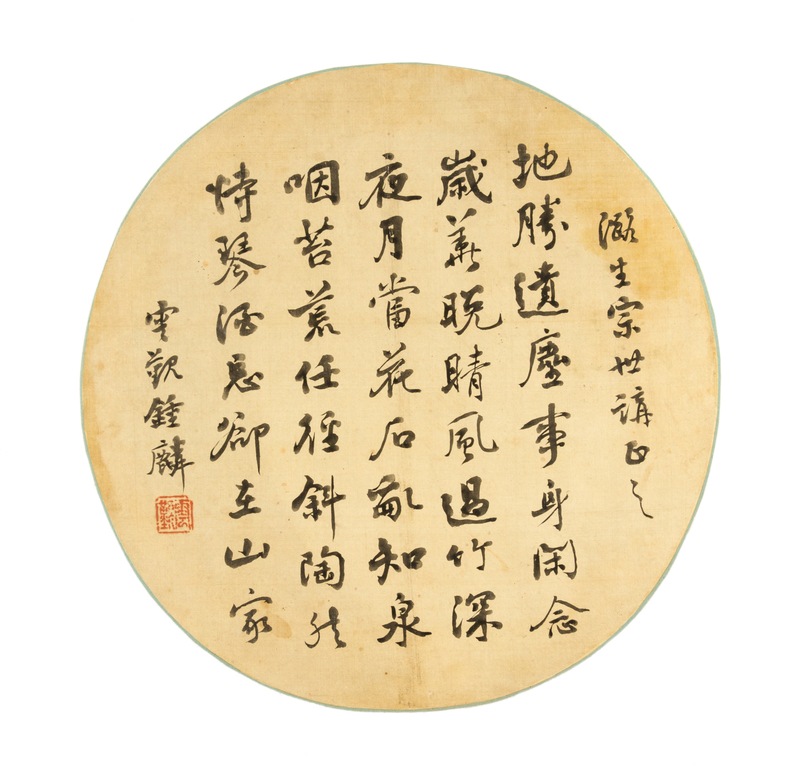 生宗世講正之
地勝遺塵事身閑念
歲華晚晴風過竹深
夜月當花石亂知泉
咽苔荒任徑斜陶然
恃琴酒忘卻在山家
雲覲鍾麟
雲覲